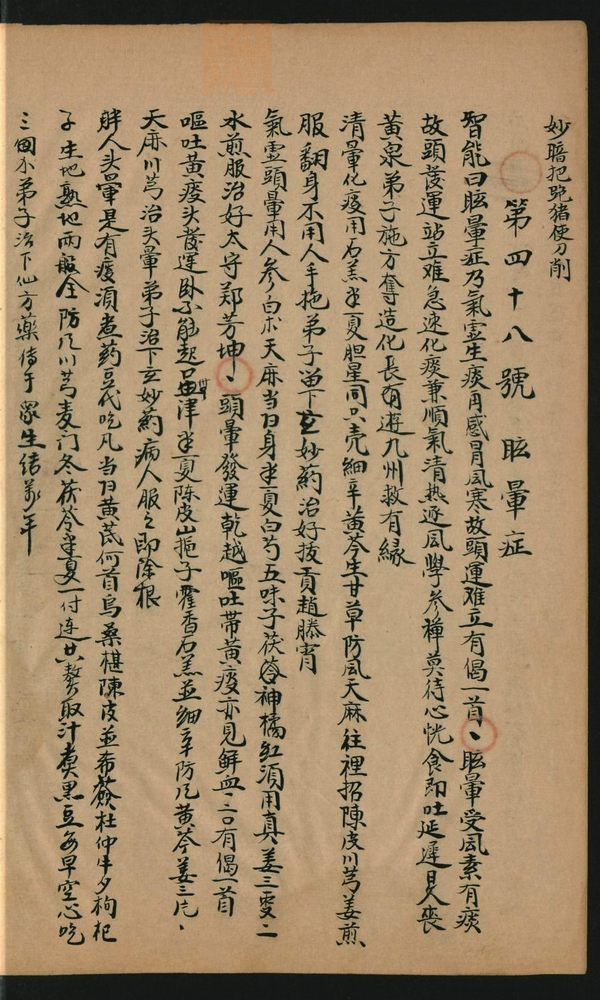 妙暗把跎猪便刀削
第四十八號 眩暈症
智能曰眩暈症乃氣灵生痰再感冒風寒故頭運难立有偈一首、眩暈受風素有痰
故頭發運站立难急速化痰兼順氣清热逐風學參禪莫待心恍食即吐延遲日久丧
黄泉弟子施方奪造化長有遊九州救有緣
清暈化痰用石羔半夏胆星同只壳細辛黄芩生甘草防風天麻往裡招陳皮川芎姜煎
服翻身不用人手拖弟子留下玄妙葯治好拔貢趙滕霄
氣灵頭暈用人參白朮天麻当归身半夏白芍五味子茯苓神橘紅須用真姜三枣二
水煎服治好太守郑芳坤、頭暈發運乾越嘔吐帯黄痰亦見鮮血三日有偈一首
嘔吐黄痰头發運卧不能起只典津半夏陈皮山梔子霍香石羔並细辛防风黄芩姜三片、
天麻川芎治头暈弟子治下玄妙葯病人服之即除根
胖人头暈是有痰須煮葯豆代吃凡当归黄芪何首烏桑椹陳皮並希薟杜仲牛夕枸杞
子生地熟地兩般全防风川芎麦门冬茯苓半夏一付連共熬取汁煑黑豆每早空心吃
三回小弟子治下仙方藥传于众生结万年